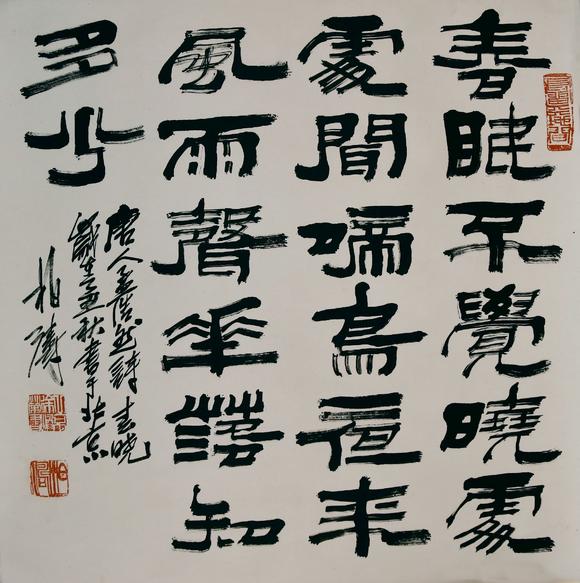 春眠不覺曉處
處聞啼鳥夜来
風雨聲花落知
多少
唐人孟浩然詩春晓
秋書于北京